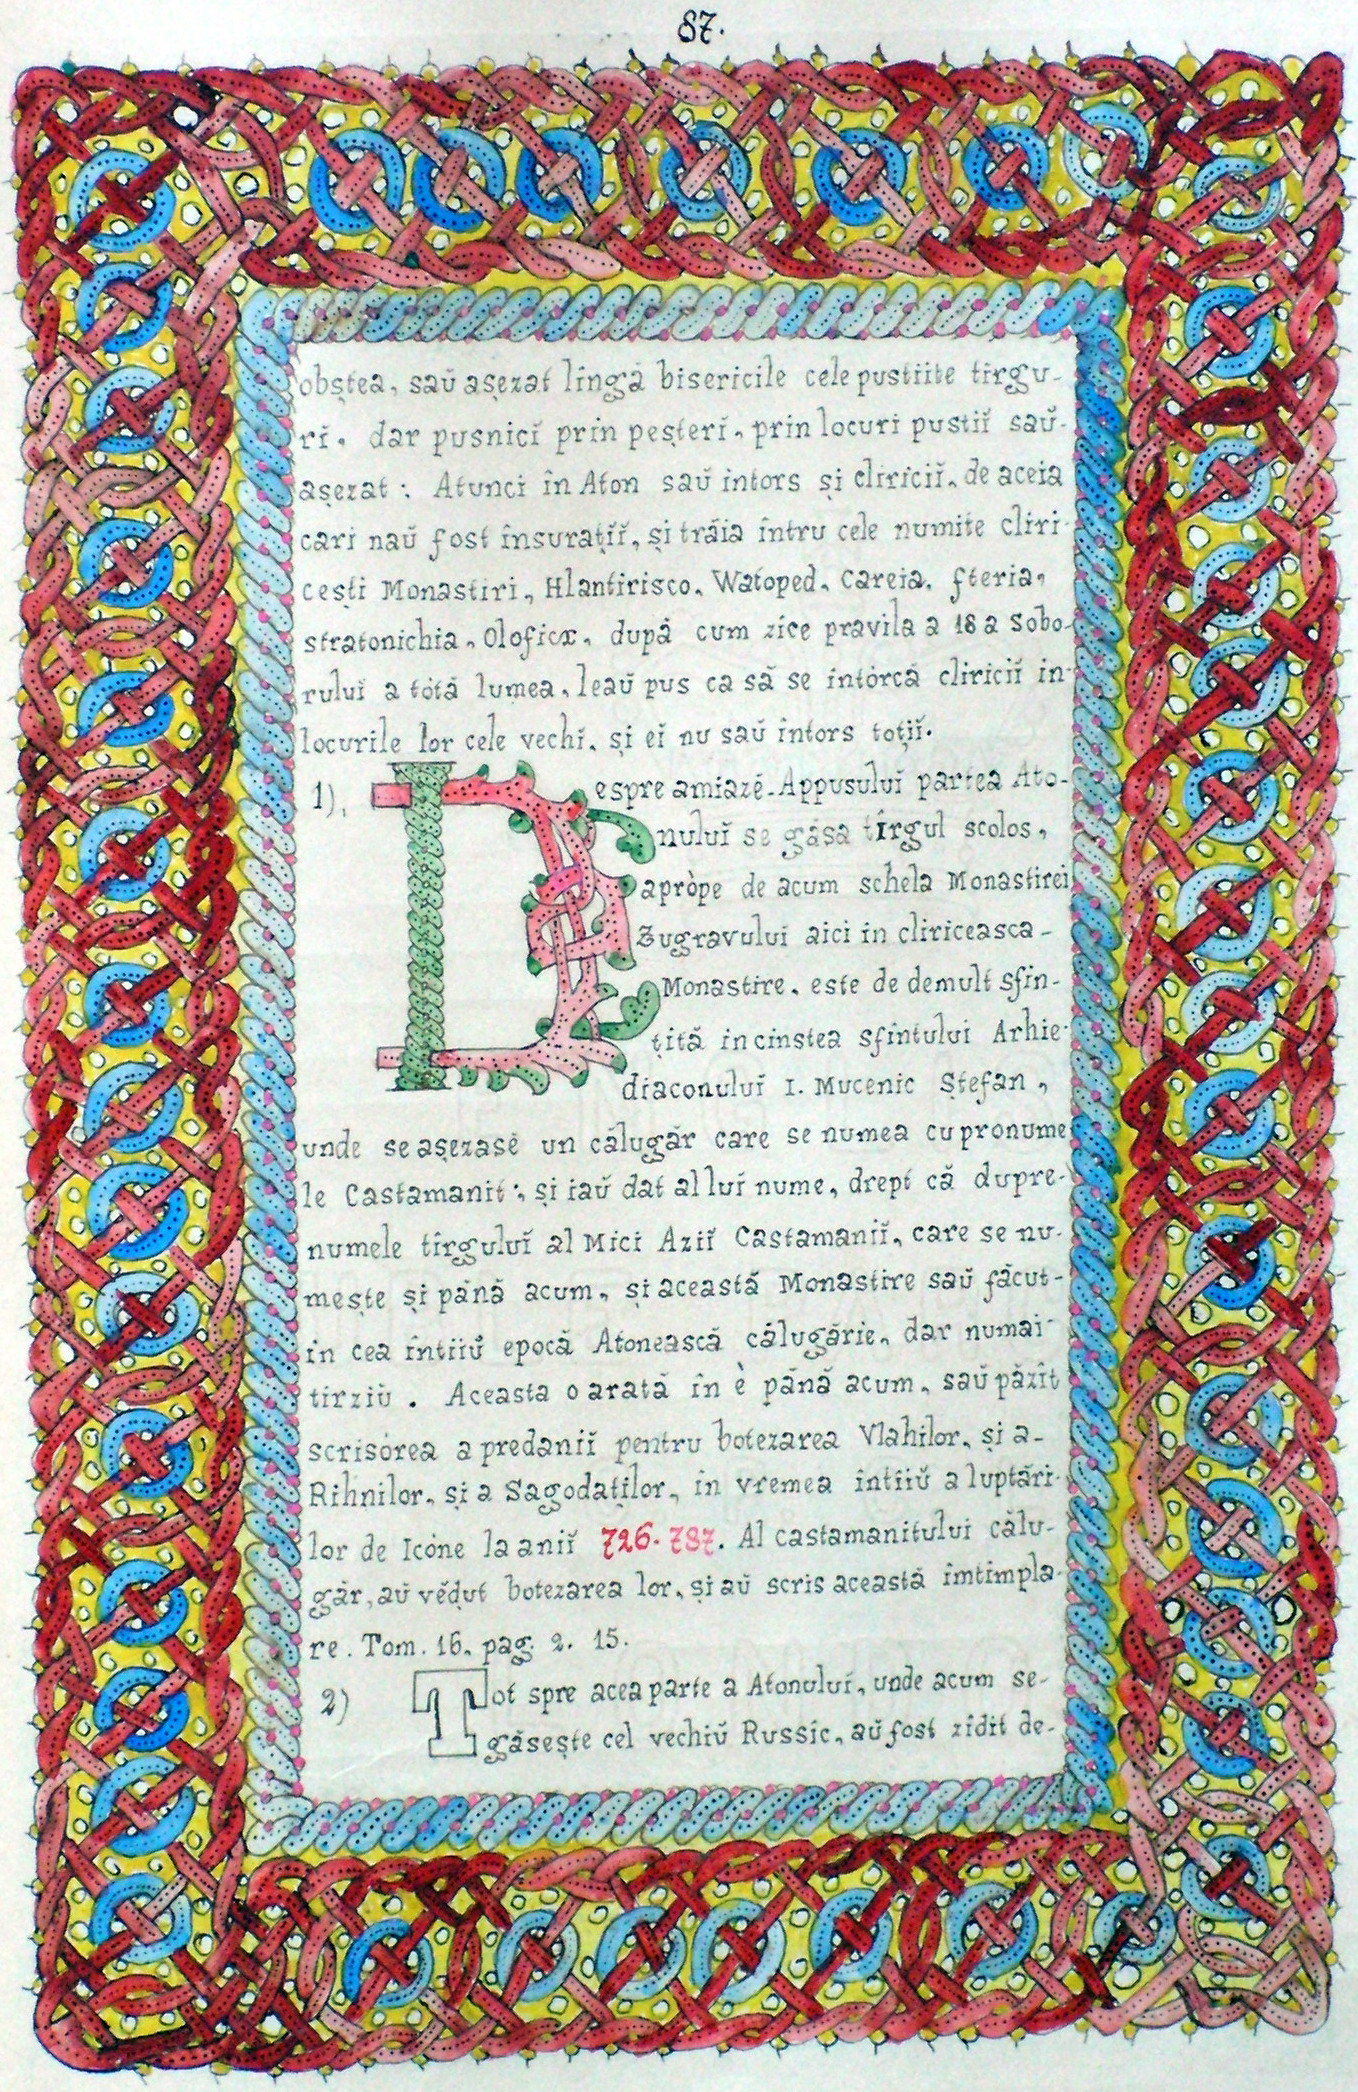 87.
obștea, saŭ așezat lîngă bisericile cele pustiite tîrgu-
rĭ, dar pusnicĭ prin peșterĭ, prin locuri pustiĭ saŭ-
așezat: Atunci în Aton saŭ intors și cliriciĭ, de aceia
cari naŭ fost însurațiĭ, și trăia întru cele numite cliri-
cești Monastiri, Hlantirisco, Watoped, Careia, fteria,
stratonichia, Oloficæ, după cum zice pravila a 18 a Sobo-
ruluĭ a tótă lumea, leaŭ pus ca să se intórcă cliriciĭ in-
locurile lor cele vechĭ, și eĭ nu saŭ intors toțiĭ.
1), Despre amiazĕ-Appusuluĭ partea Ato-
nuluĭ se găsa tîrgul scolos,
apròpe de acum schela Monastireĭ
Zugravuluĭ aici in cliriceasca-
Monastire, este de demult sfin-
țită in cinstea sfîntuluĭ Arhie-
diaconuluĭ I. Mucenic Ștefan,
unde se așezasĕ un călugăr care se numea cu pronume
le Castamanit; și iaŭ dat al luĭ nume, drept că dupre-
numele tîrguluĭ al Mici Aziĭ Castamaniĭ, care se nu-
mește și până acum, și această Monastire saŭ făcut-
in cea întiiŭ epocă Atonească călugărie, dar numai-
tirziŭ. Aceasta o arată în è până acum, saŭ păzit
scrisórea a predaniĭ pentru botezarea Vlahilor, și a-
Rihnilor, și a Sagodaților, în vremea întiiŭ a luptări-
lor de Icóne la aniĭ 726-787. Al castamanituluĭ călu-
găr, aŭ vĕḑut botezarea lor, și aŭ scris această imtimpla-
re. Tom. 16. pag. 2. 15.
2) Tot spre acea parte a Atonuluĭ, unde acum se-
găsește cel vechiŭ Russic, aŭ fost zidit de-